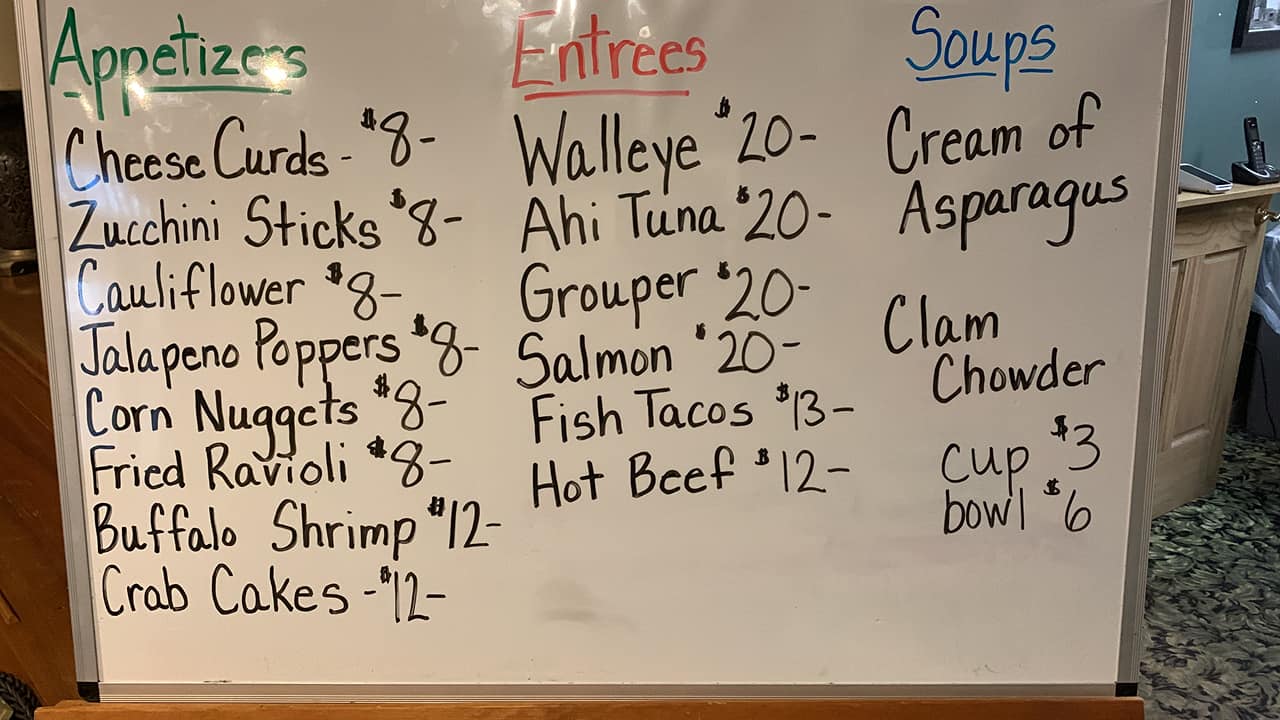 Appetizers
Cheese Curds - $8-
Zucchini Sticks $8-
Cauliflower $8-
Jalapeno Poppers $8-
Corn Nuggets $8-
Fried Ravioli $8-
Buffalo Shrimp $12-
Crab Cakes - $12-
Entrees
Walleye $20-
Ahi Tuna $20-
Grouper $20-
Salmon $20-
Fish Tacos $13-
Hot Beef $12-
Soups
Cream of
Asparagus
Clam
Chowder
cup $3
bowl $6